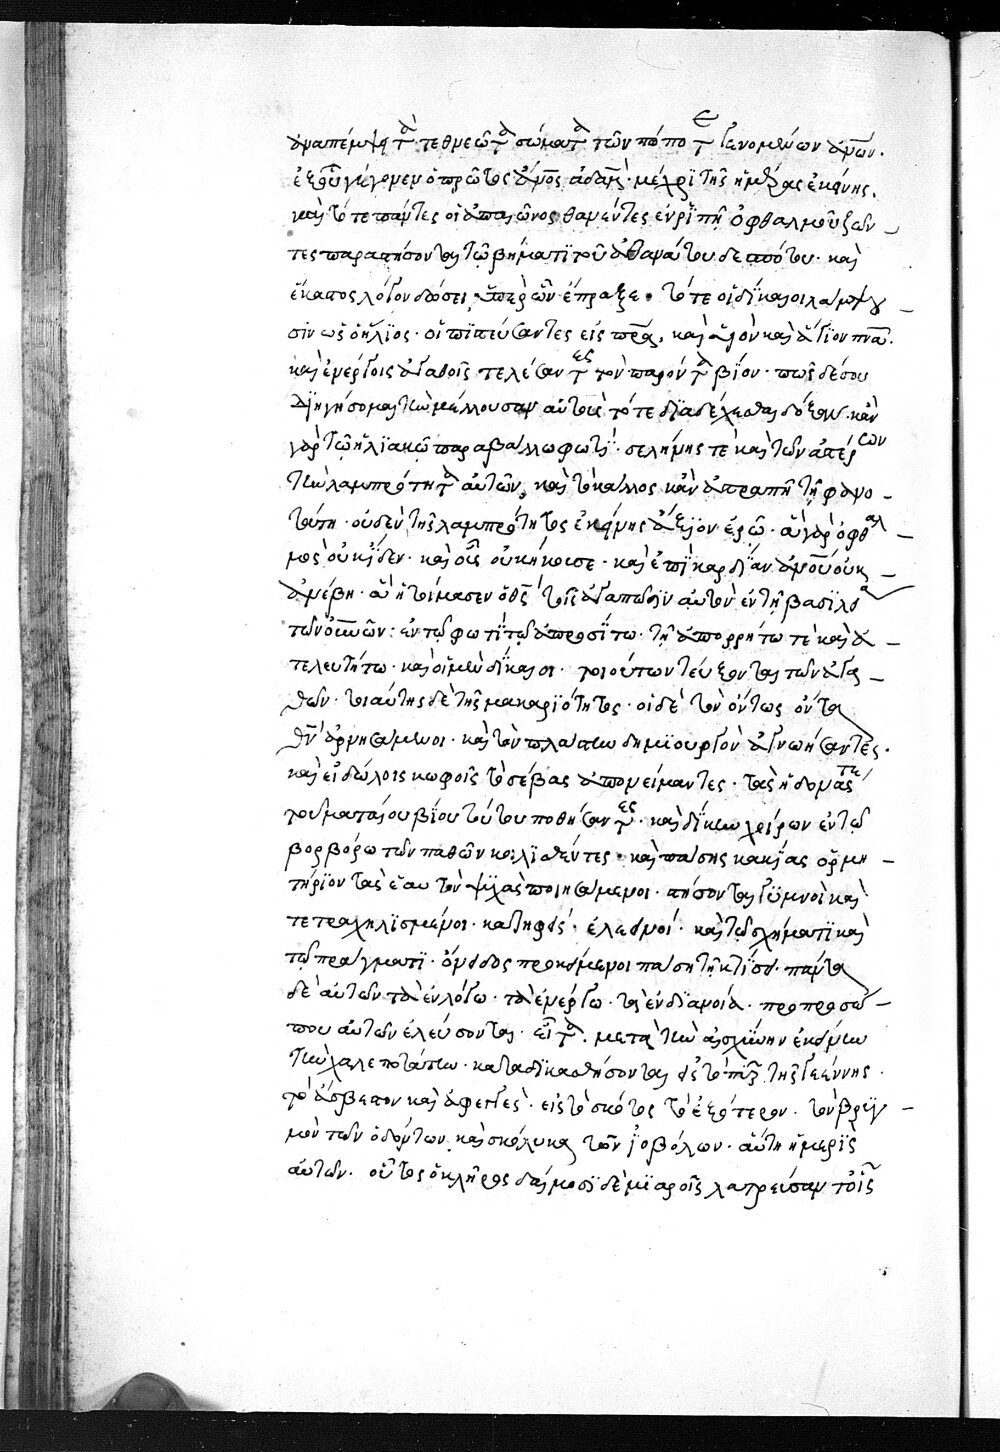 ἀναπέμψη τὰ τεθνεῶτα σώματα τῶν πώποτε γενομένων ἀνων.
ἐξ οὗ γέγονεν ὁ πρῶτος ἄνος ἀδὰμ· μέχρι τῆς ἡμέρας ἐκείνης.
καὶ τότε πάντες οἱ ἀπαιῶνος θανέντες ἐν ῥιπῆ ὀφθαλμοῦ ζων
τες παραστήσονται τῶ βήματι τοῦ ἀθανάτου δεσπότου· καὶ
ἕκαστος λόγον δώσει, ὑπὲρ ὧν ἔπραξε. τότε οἱ δίκαιοι λάμψου
σιν ὡς ὁ ἥλιος· οἱ πιστεύσαντες εἰς πρα, καὶ υἱὸν καὶ ἅγιον πνα.
καὶ ἐν ἔργοις ἀγαθοῖς τελέσαντες τὸν παρόντα βίον· πῶς δέ σοι
διηγήσομαι τὴν μέλλουσαν αὐτοὺς τότε διαδέχεσθαι δόξαν· κἂν
γὰρ τῶ ἡλιακῶ παραβάλλω φωτὶ· σελήνης τὲ καὶ τῶν ἀστέρων
τὴν λαμπρότητα αὐτῶν, καὶ τὸ κάλλος κἂν ἀστραπῆ τῆ φανο
τάτη· οὐδὲν τῆς λαμπρότητος ἐκείνης ἄξιον ἐρῶ· ἃ γὰρ ὀφθαλ
μὸς οὐκ ἶδεν· καὶ οὖς οὐκ ἤκουσε· καὶ ἐπὶ καρδίαν ἀνου οὐκ
ἀνέβη· ἃ ἡτοίμασεν ὁ θς τοῖς ἀγαπῶσιν αὐτὸν ἐν τῆ βασιλεία
τῶν οὐνων: ἐν τῶ φωτὶ τῶ ἀπροσίτω· τῆ ἀπορρήτω τὲ καὶ ἀ
τελευτήτω· καὶ οἱ μὲν δίκαιοι· τοιούτων τεύξονται τῶν ἀγα
θῶν· τοιαύτης δὲ τῆς μακαριότητος· οἱ δὲ τὸν ὄντως ὄντα
θν ἀρνησάμενοι· καὶ τὸν πλάστην δημιουργὸν ἀγνωήσαντες·
καὶ εἰδώλοις κωφοῖς τὸ σέβας ἀπονείμαντες· τὰς ἡδονάς τε
τοῦ ματαίου βίου τούτου ποθήσαντες· καὶ δίκην χοίρων ἐν τῶ
βορβόρω τῶν παθῶν κοιλισθέντες· καὶ πάσης κακίας ὁρμη
τήριον τὰς ἑαυτῶν ψυχὰς ποιησάμενοι· στήσονται γυμνοὶ καὶ
τετραχηλισμένοι· κατηφεῖς· ἐλεεινοί· καὶ τῶ σχήματι καὶ
τῶ πράγματι· ὄνειδος προκείμενοι πάση τῆ κτίσει· πάντα
δὲ αὐτῶν τὰ ἐν λόγω· τὰ ἐν ἔργω· τὰ ἐν διανοία· πρὸ προσώ
που αὐτῶν ἐλεύσονται· εἶτα. μετὰ τὴν αἰσχύνην ἐκείνην
τὴν χαλεποτάτην· καταδικασθήσονται εἰς τὸ πῦρ τῆς γεέννης·
τὸ ἄσβεστον καὶ ἀφεγγὲς· εἰς τὸ σκότος τὸ ἐξώτερον· τὸν βρυγ
μὸν τῶν ὀδόντων, καὶ σκώληκα τῶν ἰοβόλων· αὕτη ἡ μερὶς
αὐτῶν· οὗτος ὁ κλῆρος δαίμοσι δὲ μιαροῖς λατρεύσαν τοῖς